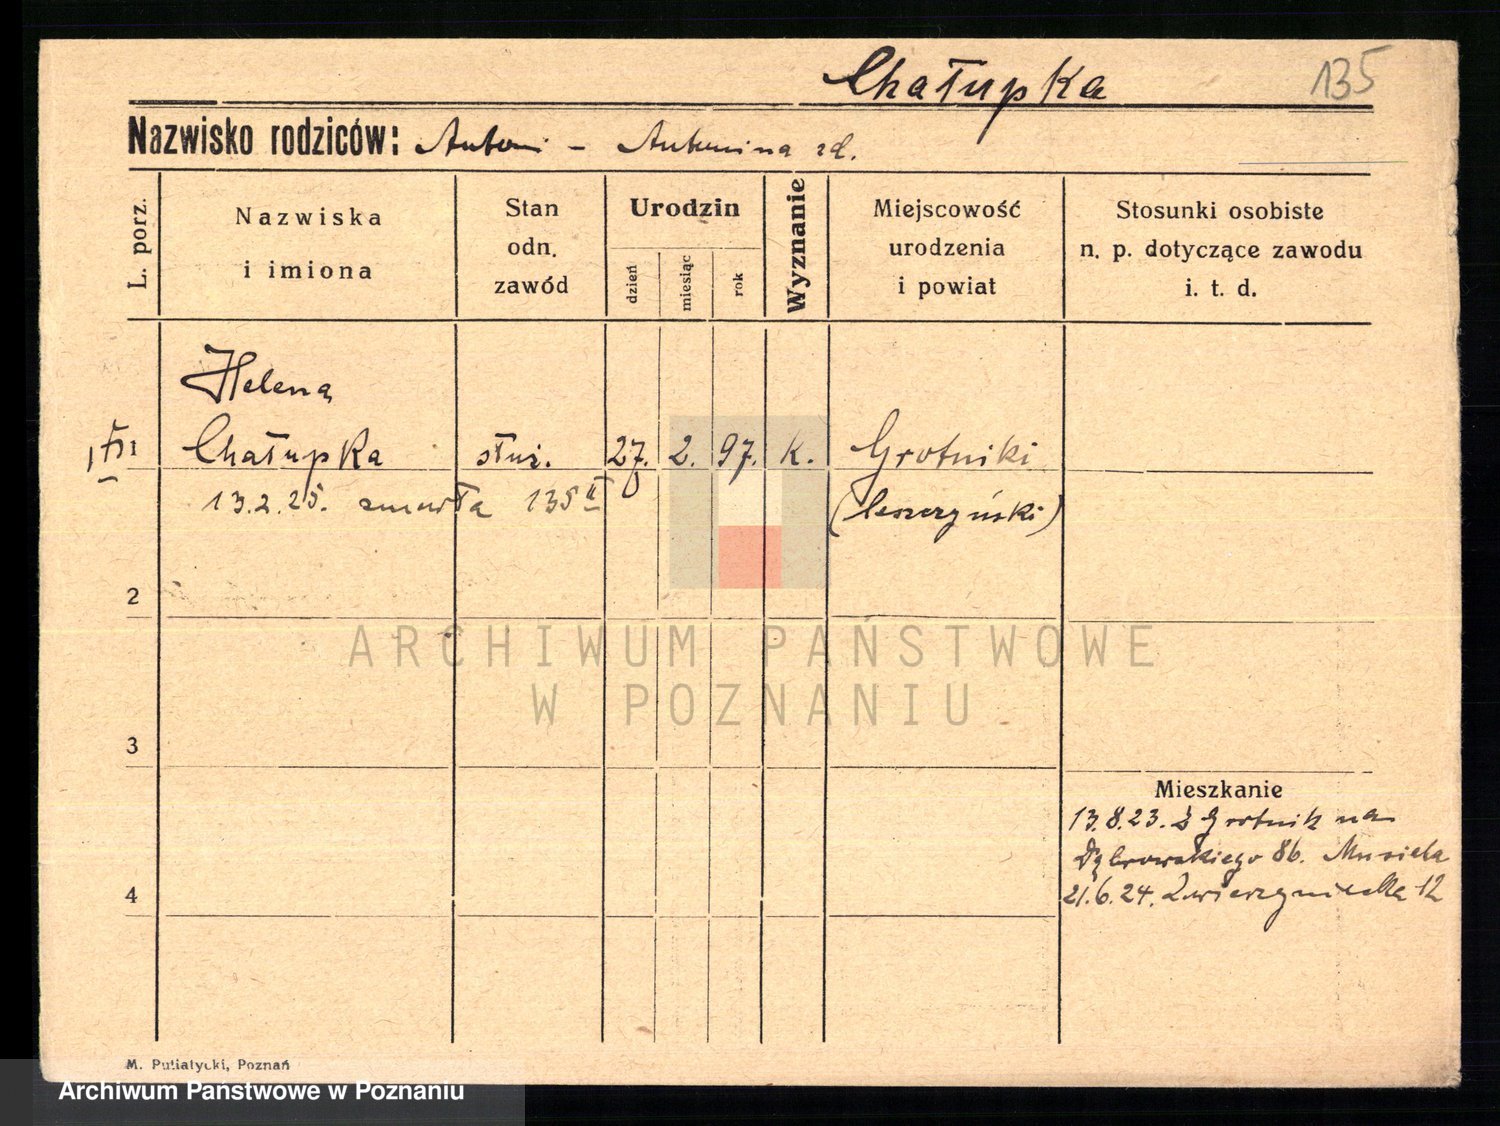 135
Chałupka
Nazwisko rodziców: Antoni - Antonina zd.
L. porz.
Nazwiska
i imiona
Stan
odn.
zawód
Urodzin
dzień
miesiąc
rok
Wyznanie
Miejscowość
urodzenia
i powiat
Stosunki osobiste
n. p. dotyczące zawodu
i. t. d.
Helena
Chałupka służ. 27. 2. 97. k. Grotniki
13.2.25. zmarła 135 II (leszczyński)
2
3
Mieszkanie
13.8.23. z Grotnik na
Dąbrowskiego 86. Musiela
4
21.6.24. Zwierzyniecka 12
ARCHIWUM PAŃSTWOWE
W POZNANIU
M. Putiatycki, Poznań
Archiwum Państwowe w Poznaniu